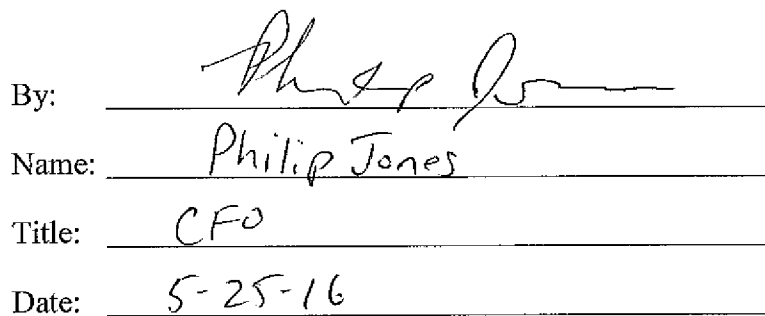 By: Philip Jones
Name: Philip Jones
Title: CFO
Date: 5-25-16